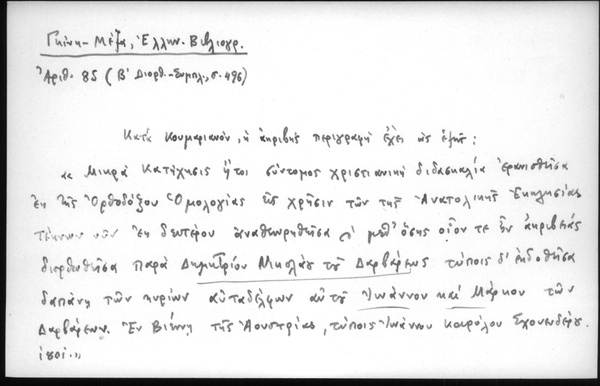 Γκίνη - Μέξα, Ἑλλην. Βιβλιογρ.
Ἀριθ. 85 (Β' Διορθ.-Συμπλ., σ. 496)
Κατὰ Κουμαριανόν, ἡ ἀκριβὴς περιγραφὴ ἔχει ὡς ἑξῆς:
« Μικρὰ Κατήχησις ἤτοι σύντομος χριστιανικὴ διδασκαλία ἐρανισθεῖσα
ἐκ τῆς Ὀρθοδόξου Ὁμολογίας εἰς χρῆσιν τῶν τῆς Ἀνατολικῆς Ἐκκλησίας
τέκνων νῦν ἐκ δευτέρου ἀναθεωρηθεῖσα μεθ' ὅσης οἷόν τε ἦν ἀκριβείας
διορθωθεῖσα παρὰ Δημητρίου Νικολάου τοῦ Δαρβάρεως τύποις δ' ἐκδοθεῖσα
δαπάνῃ τῶν κυρίων αὐταδέλφων αὐτοῦ Ἰωάννου καὶ Μάρκου τῶν
Δαρβάρεων. Ἐν Βιέννῃ τῆς Ἀουστρίας, τύποις Ἰωάννου Καρόλου Σχονενδέρυ.
»